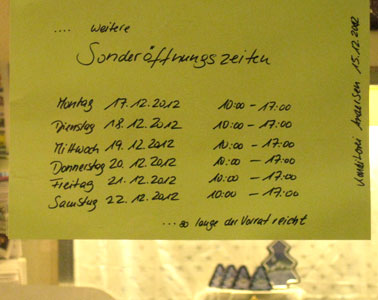 .... weitere
Sonderöffnungszeiten
Montag 17.12.2012 10:00 - 17:00
Dienstag 18.12.2012 10:00 - 17:00
Mittwoch 19.12.2012 10:00 - 17:00
Donnerstag 20.12.2012 10:00 - 17:00
Freitag 21.12.2012 10:00 - 17:00
Samstag 22.12.2012 10:00 - 17:00
...so lange der Vorrat reicht
Konditorei Andersen 15.12.2012